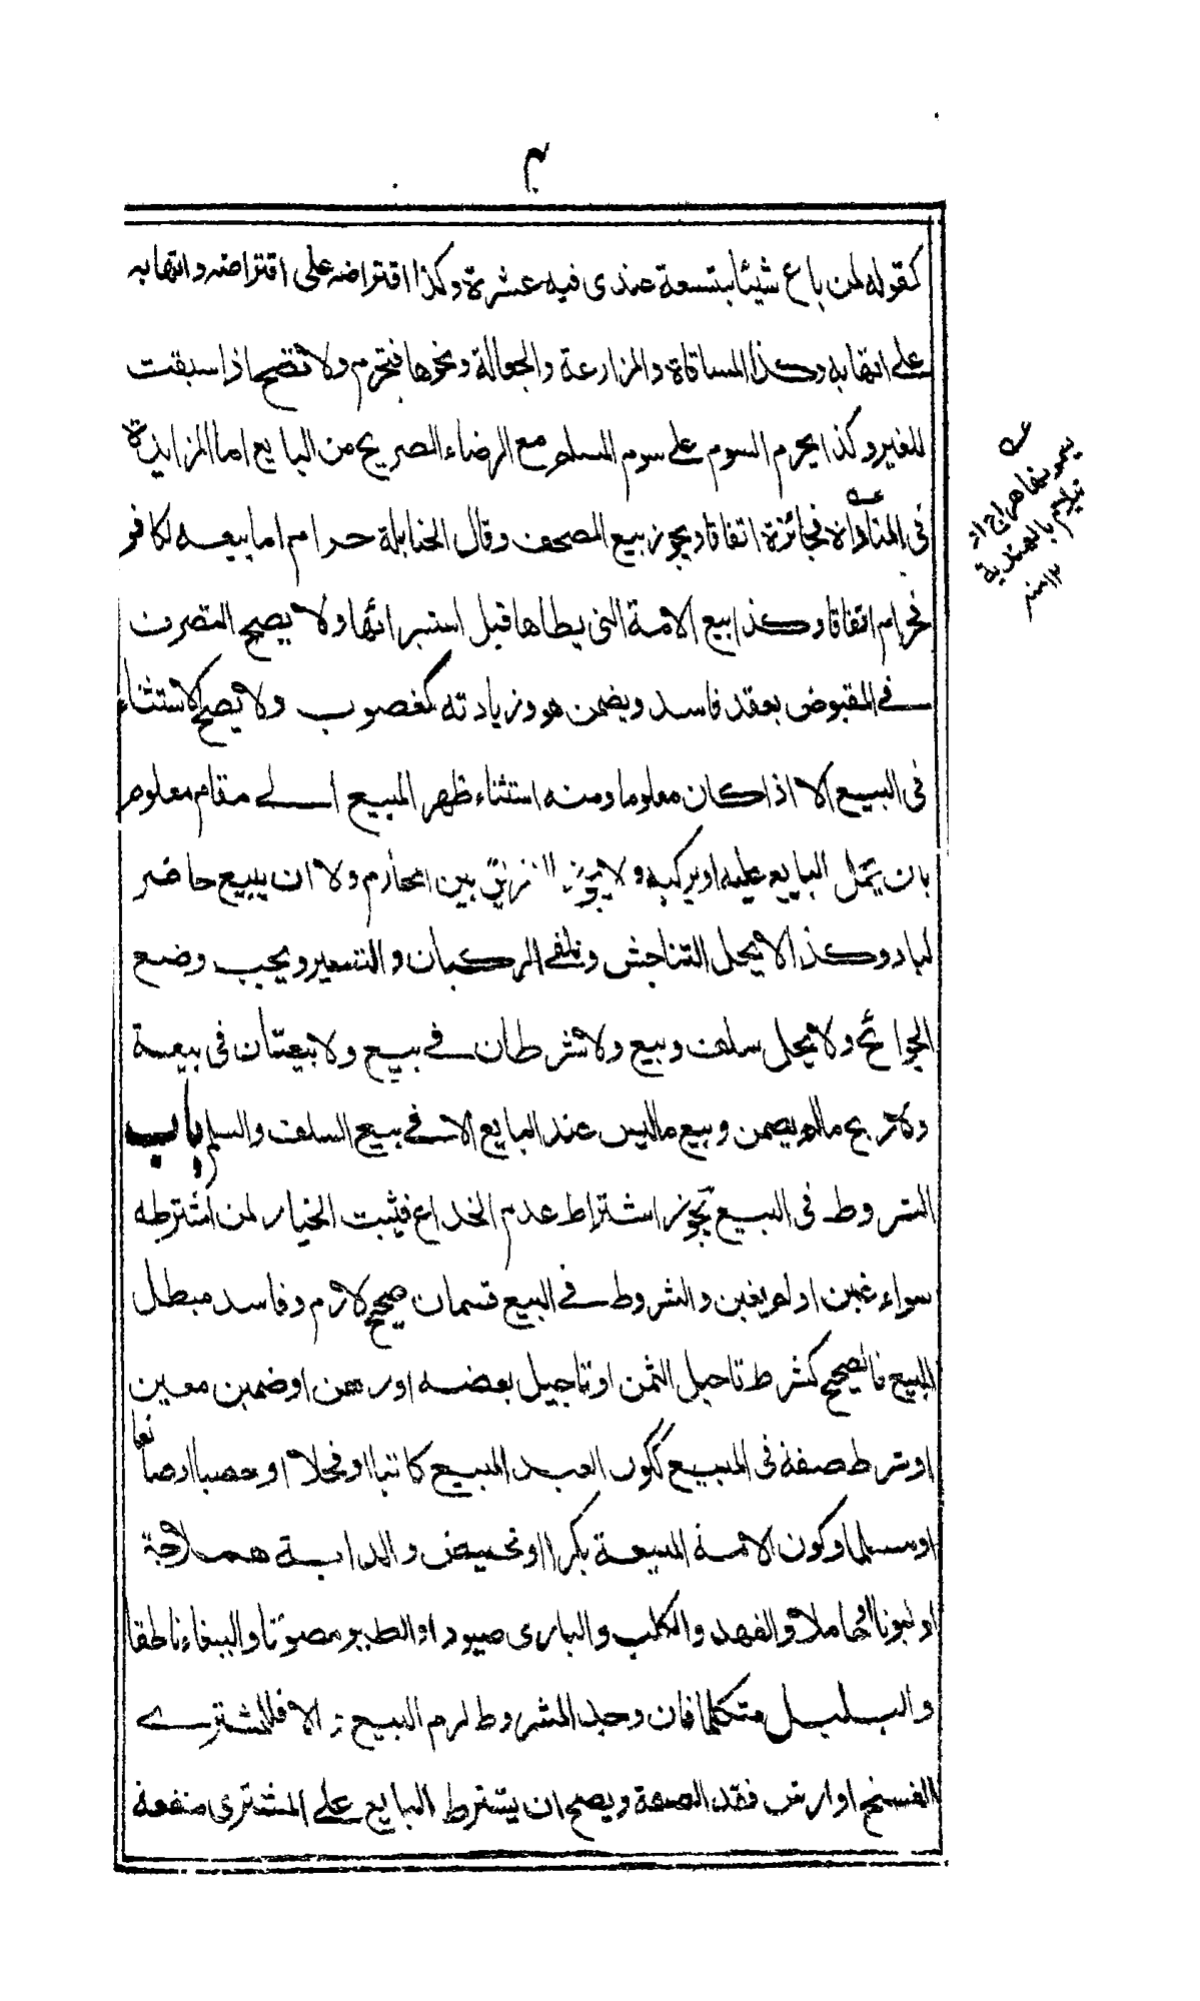 ٣
كقوله لمن باع شيئا بتسعة عندى فيه عشرة وكذا اقتراضه على اقتراضه وانتهابه
على انتهابه وكذا المساقاة والمزارعة والجعالة ونحوها فتحرم ولا تصح اذا سبقت
للغير وكذا يحرم السوم على سوم المسلم مع الرضاء الصريح من البايع اما المزايدة
فى المناداة فجائزة اتفاقا ويجوز بيع المصحف وقال الحنابلة حرام اما بيعه لكافر
فحرام اتفاقا وكذا بيع الامة التى يطاها قبل استبرائها ولا يصح التصرف
فے المقبوض بعقد فاسد ويضمن هو وزيادته كمغصوب ولا يصح الاستثناء
فى البيع الا اذا كان معلوما ومنه استثناء ظهر المبيع الے مقام معلوم
بان يحمل البايع عليه او يركبه ولا يجوز التفريق بين المحارم ولا ان يبيع حاضر
لباد وكذا لا يحل التناجش وتلقے الركبان والتسعير ويجب وضع
الجوائح ولا يحل سلف وبيع ولا شرطان فے بيع ولا بيعتان فى بيعة
ولا ربح مالم يضمن وبيع ما ليس عند البايع الا فے بيع السلف والسلم باب
الشروط فى البيع يجوز اشتراط عدم الخداع فيثبت الخيار لمن اشترطه
سواء غبن اولم يغبن والشروط فے البيع قسمان صحيح لازم وفاسد مبطل
للبيع فالصحيح كشرط تاجيل الثمن او تاجيل بعضه او رهن او ضمين معين
او شرط صفة فى المبيع ككون العبد المبيع كاتبا او فحلا او خصيا او صانعا
او مسلما وكون الامة المبيعة بكرا او تحيض والدابة هملاجة
او لبونا او حاملا والفهد والكلب والبازى صيودا والطير مصوتا والببغاء ناطقا
والبلبل متكلما فان وجد المشروط لزم البيع والا فللمشترے
الفسخ او ارش فقد الصفة ويصح ان يشترط البايع على المشترى منفعة
عه
يسمونها هراج او
نيلام بالهندية
١٢ منه